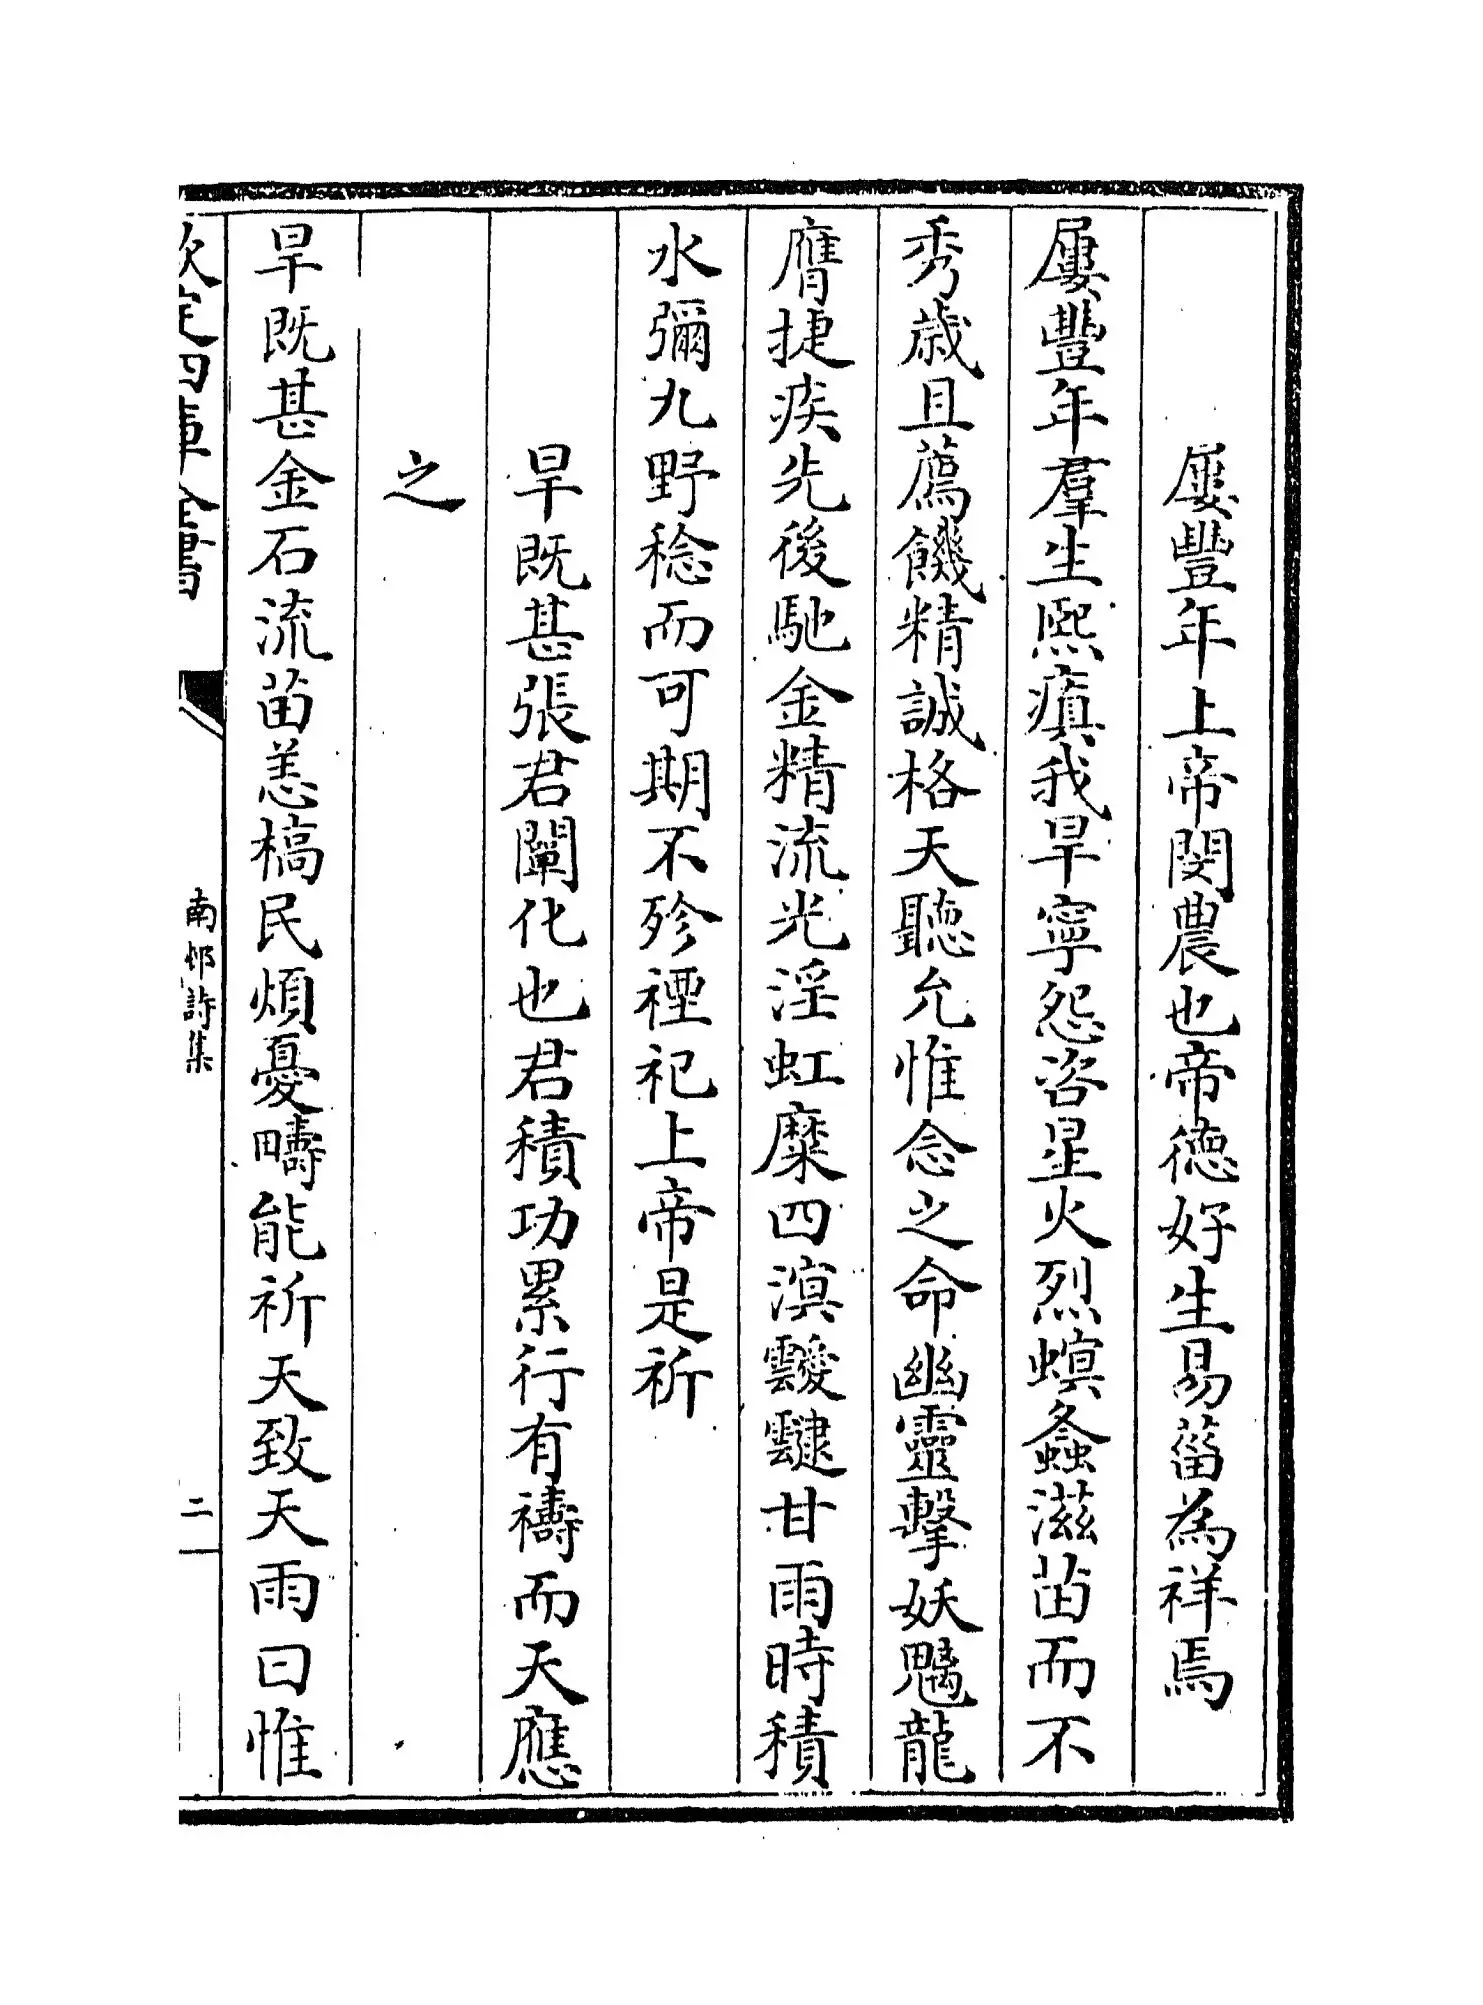 屢豐年上帝閔農也帝德好生易菑為祥焉
屢豐年羣生熙瘨我旱寧怨咨星火烈螟螽滋苗而不
秀歳且薦饑精誠格天聽允惟念之命幽靈擊妖魑龍
膺捷疾先後馳金精流光淫虹糜四溟靉靆甘雨時積
水彌九野稔而可期不殄禋祀上帝是祈
旱既甚張君闡化也君積功累行有禱而天應
之
旱既甚金石流苗恙槁民煩憂疇能祈天致天雨曰惟
欽定四庫全書
南邨詩集
二